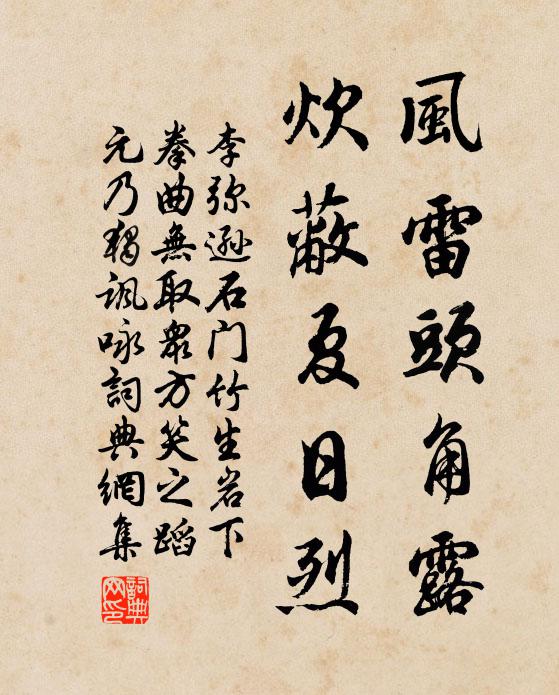 風雷頭角露
炊蔽夏日烈
李弥遜石门竹生岩下
拳曲無取眾方笑之蹈
元乃獨諷咏詞典網集
詞典网印